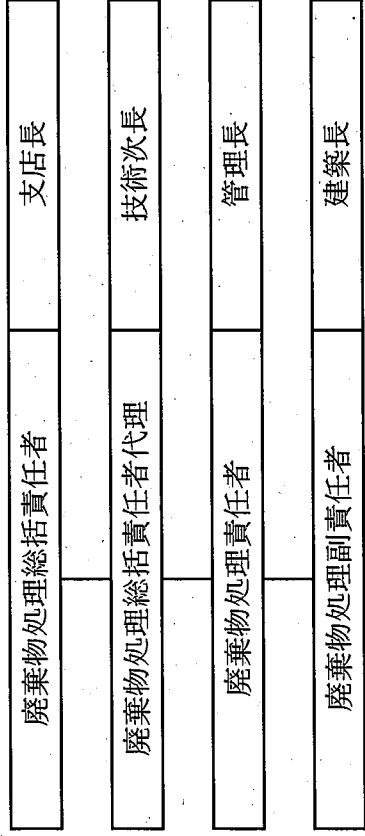 廃棄物処理総括責任者 支店長
廃棄物処理総括責任者代理 技術次長
廃棄物処理責任者 管理長
廃棄物処理副責任者 建築長